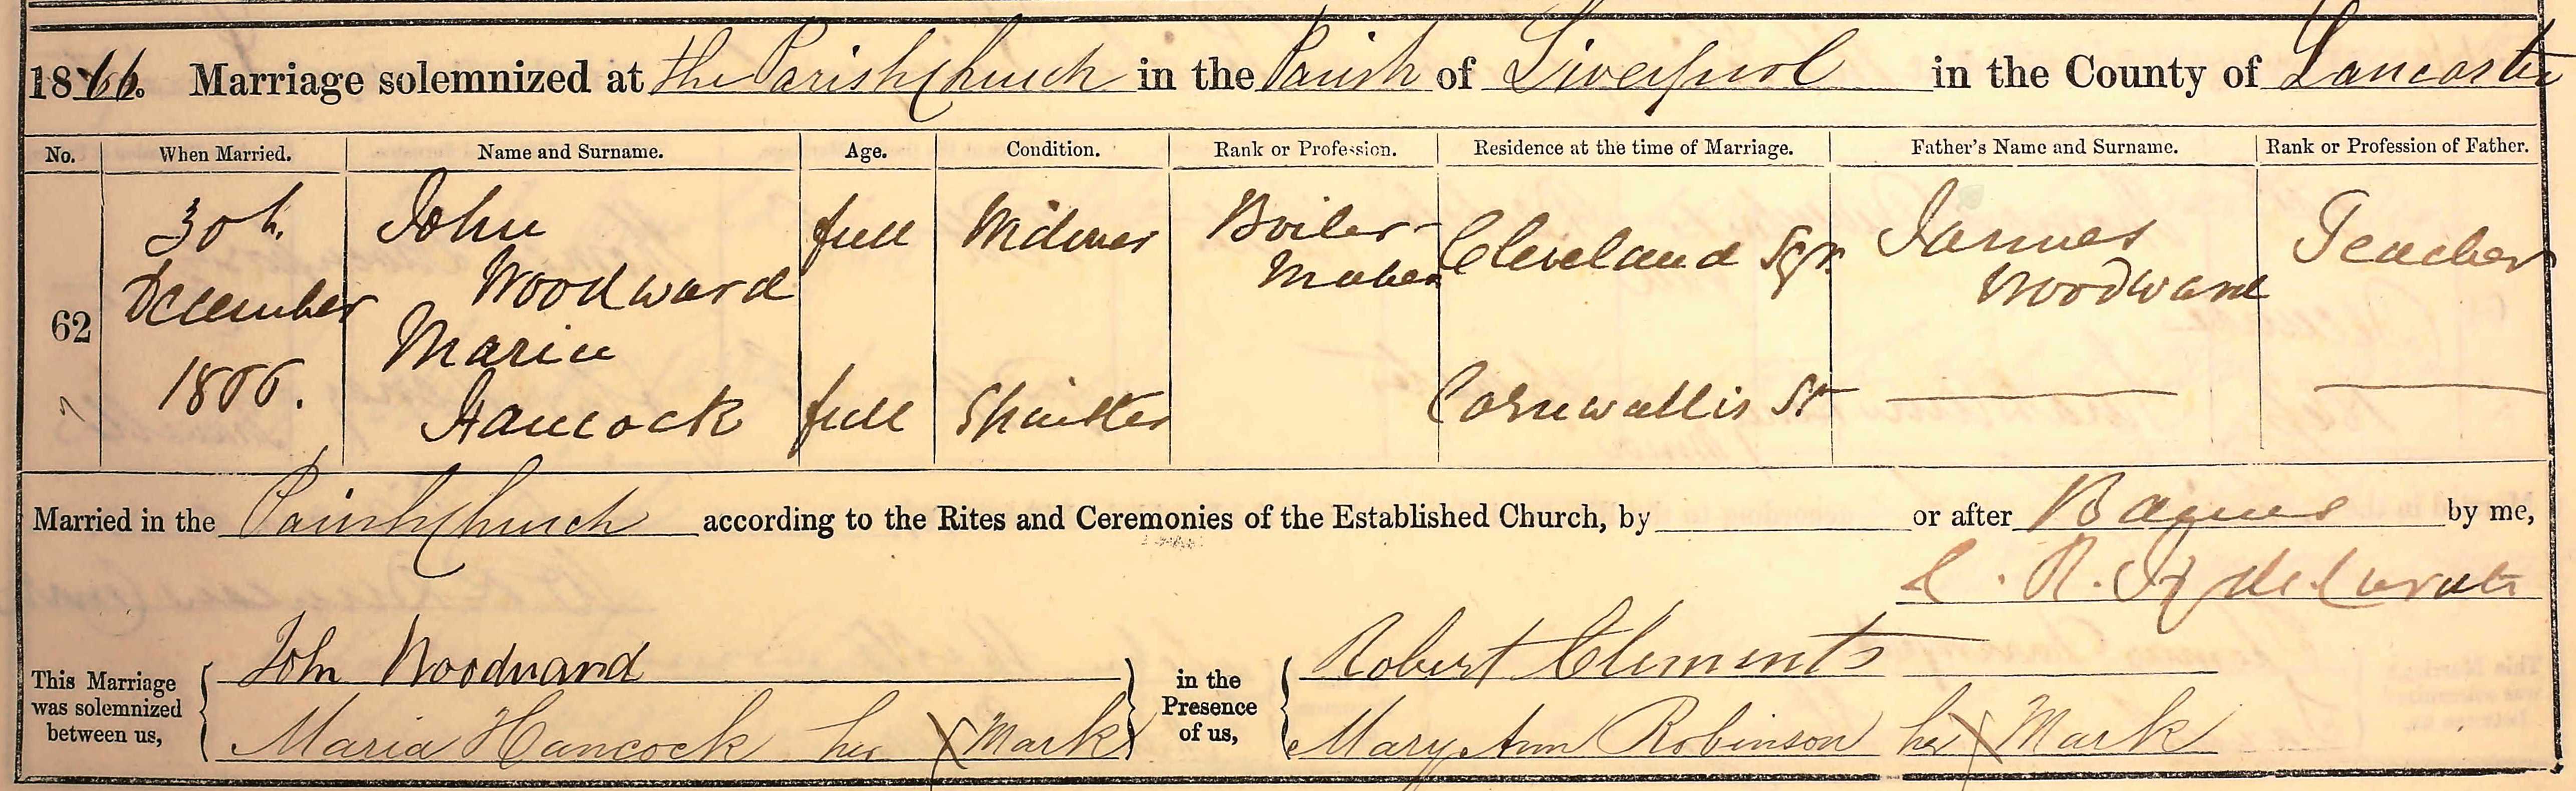 1866. Marriage solemnized at the Parish Church in the Parish of Liverpool in the County of Lancaster
No. When Married. Name and Surname. Age. Condition. Rank or Profession. Residence at the time of Marriage. Father's Name and Surname. Rank or Profession of Father.
62 30th. December 1866. John Woodward full Widower Boiler-Maker Cleveland Sqr. James Woodward Teacher
7 Maria Hancock full Spinster Cornwallis St
Married in the Parish Church according to the Rites and Ceremonies of the Established Church, by or after Banns by me,
C. R. Hyde Curate
This Marriage was solemnized between us, John Woodward in the Presence of us, Robert Clements
Maria Hancock her X Mark Mary Ann Robinson her X Mark